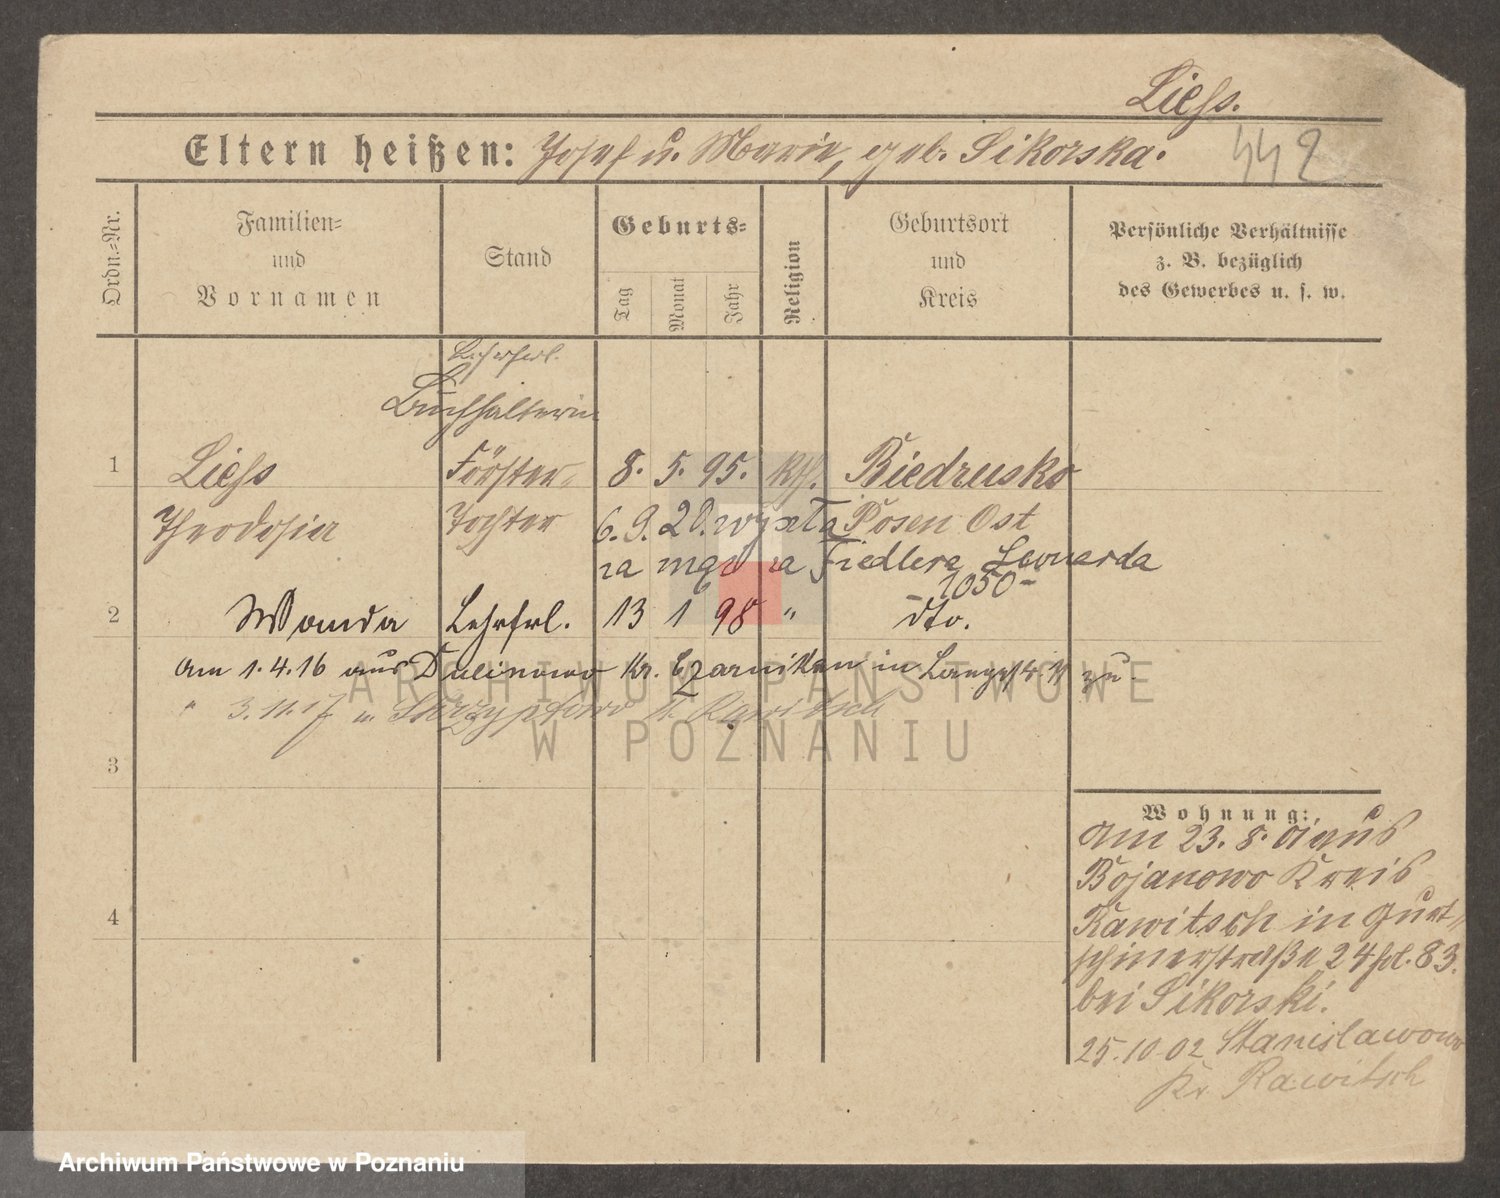 Liess.
Eltern heißen: Josef u. Marie, geb. Sikorska.
442
Ordn.=Nr.
Familien=
und
Vornamen
Stand
Geburts=
Tag
Monat
Jahr
Religion
Geburtsort
und
Kreis
Persönliche Verhältnisse
z. B. bezüglich
des Gewerbes u. s. w.
Lehrfrl.
Buchhalterin
1 Liess Förster= 8. 5. 95. kth. Biedrusko
Theodosia Tochter 6. 9. 20. wyszła Posen Ost
za mąż za Fiedlera Leonarda
1050
2 Wanda Lehrfrl. 13 1 98 " dto.
Am 1.4.16 aus Kr. Czarnikau in zu.
" 3.11.17 n. Kr. Rawitsch
3
4
Wohnung:
Am 23. 8. 01 aus
Bojanowo Kreis
Rawitsch in Gurt=
schinerstraße 24 fol. 83.
bei Sikorski.
25.10.02 Stanislawowo
Kr Rawitsch
ARCHIWUM PAŃSTWOWE
W POZNANIU
Archiwum Państwowe w Poznaniu